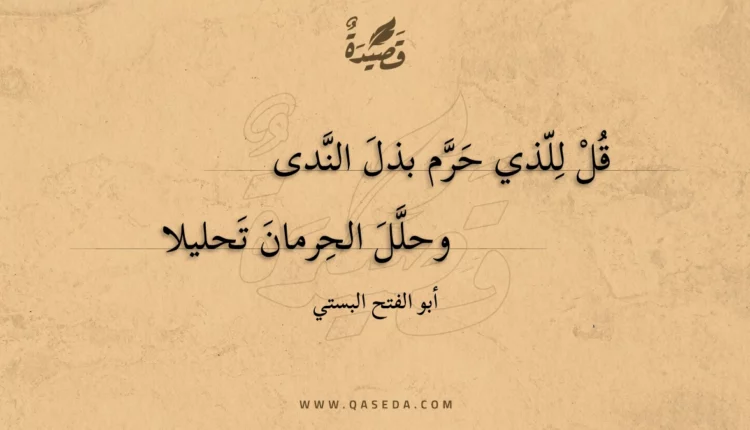 قَصِيْدَةٌ
قُلْ لِلّذي حَرَّم بذلَ النَّدى
وحلَّلَ الحِرمانَ تَحليلا
أبو الفتح البستي
WWW.QASEDA.COM